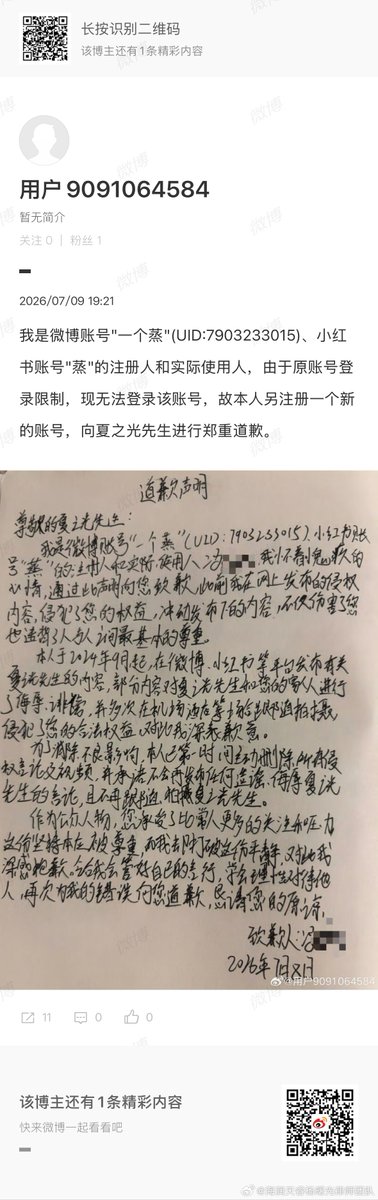 长按识别二维码
该博主还有1条精彩内容
用户9091064584
暂无简介
关注 0 | 粉丝 1
2026/07/09 19:21
我是微博账号"一个蒸"(UID:7903233015)、小红
书账号"蒸"的注册人和实际使用人，由于原账号登
录限制，现无法登录该账号，故本人另注册一个新
的账号，向夏之光先生进行郑重道歉。
道歉声明
尊敬的夏之光先生：
我是微博账号"一个蒸"(UID:7903233015)、小红书账
号"蒸"的注册人和实际使用人 我怀着愧疚的
心情，通过此声明向您致歉，此前我在网上发布的侵权
内容，侵犯了您的权益，冲动发布下的内容，不仅伤害了您
也违背了人与人之间最基本的尊重。
本人于2024年9月起，在微博、小红书等平台发布有关
夏之光先生的内容，部分内容对夏之光先生和您的家人进行
了侮辱、诽谤，并多次在机场酒店等小的跟追拍摄
侵犯了您的合法权益，对此我深表歉意。
为了消除不良影响，本人已第一时间主动删除所有侵
权言论文视频，并承诺不会再发布任何造谣、侮辱夏之光
先生的言论，且不再跟追、拍摄夏之光先生。
作为公众人物，您承受了比常人更多的关注和压力
这份坚持本应被尊重，而我却打破这份平静，对此我
深感抱歉。今后我会管好自己的言行，学会理性对待他
人，再次为我的错误向您道歉，恳请您的原谅。
致歉人：
2026年7月8日
@用户9091064584
11
0
0
该博主还有1条精彩内容
快来微博一起看看吧
微博